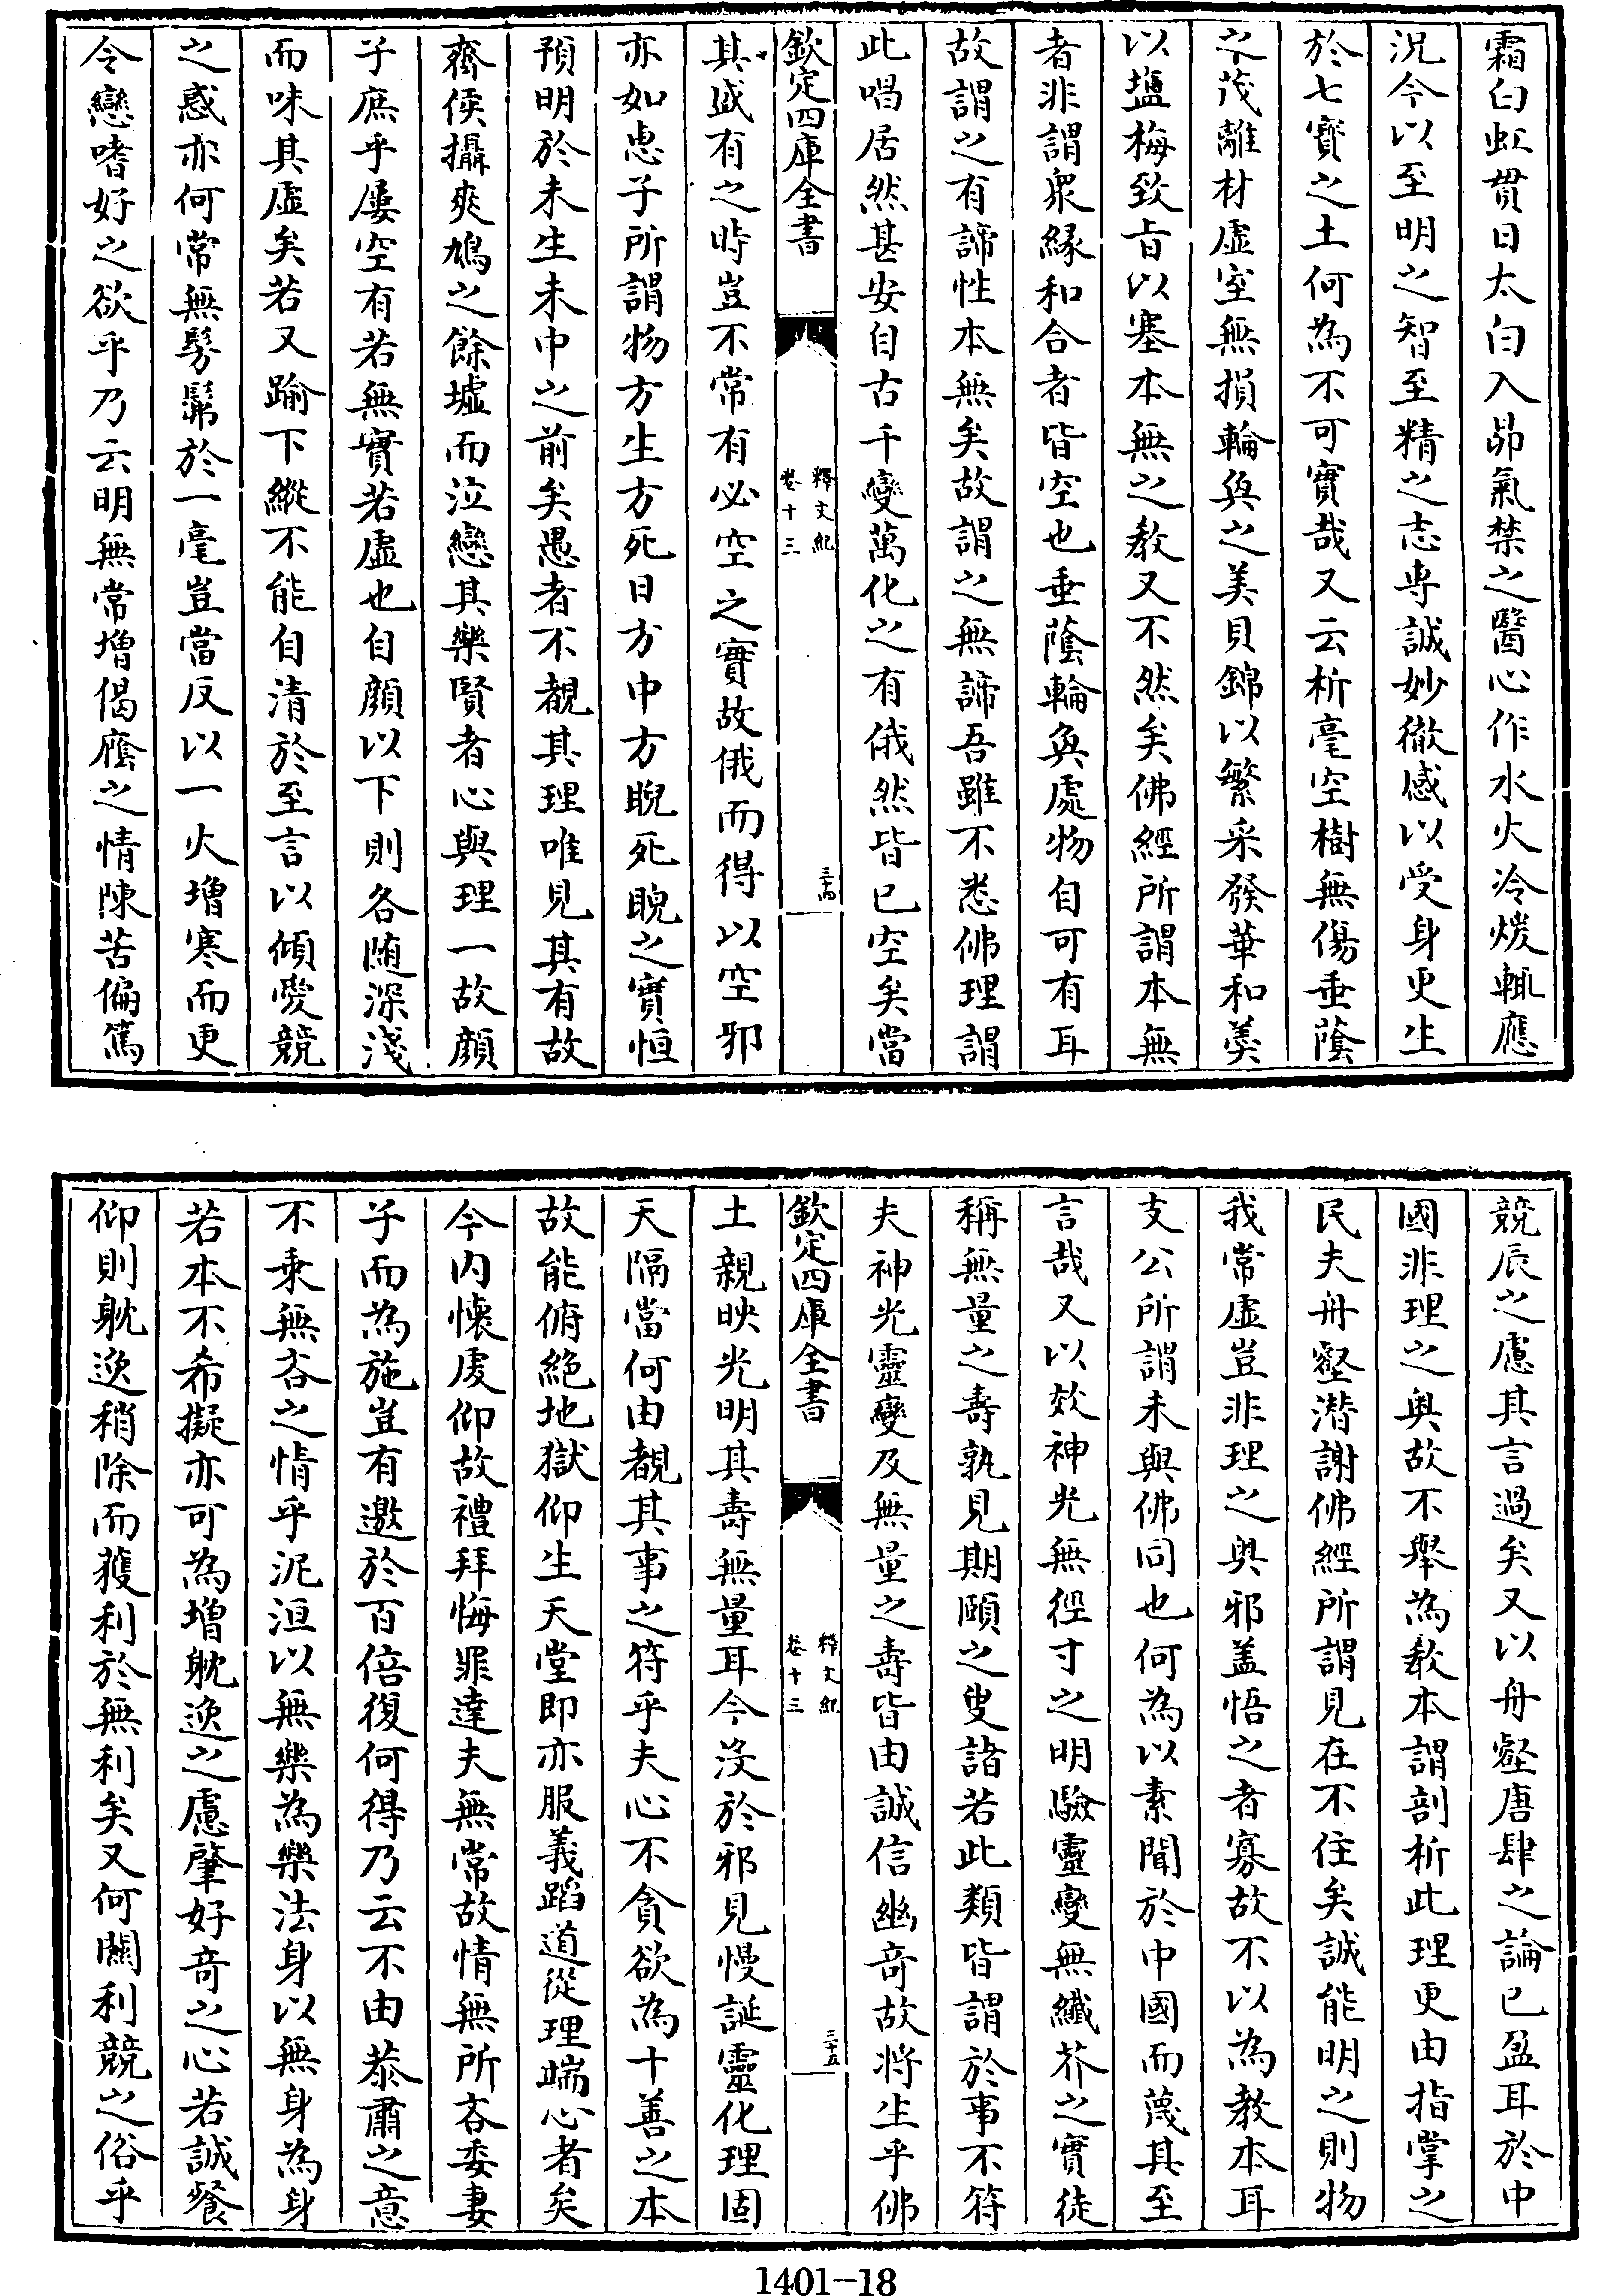 霜白虹貫日太白入昴氣禁之醫心作水火冷煖輒應
況今以至明之智至精之志専誠妙徹感以受身更生
於七寳之土何為不可實哉又云析毫空樹無傷垂蔭
之茂離材虚室無損輪奐之美貝錦以繁采發華和羮
以塩梅致旨以塞本無之教又不然矣佛經所謂本無
者非謂衆緣和合者皆空也垂蔭輪奐處物自可有耳
故謂之有諦性本無矣故謂之無諦吾雖不悉佛理謂
此唱居然甚安自古千變萬化之有俄然皆已空矣當
欽定四庫全書
釋文紀
卷十三
三十四
其盛有之時豈不常有必空之實故俄而得以空邪
亦如恵子所謂物方生方死日方中方睨死睨之實恒
預明於未生未中之前矣愚者不覩其理唯見其有故
齊侯攝爽鳩之餘墟而泣戀其樂賢者心與理一故顔
子庶乎屢空有若無實若虚也自顔以下則各随深淺
而味其虚矣若又踰下縱不能自清於至言以傾愛競
之惑亦何常無髣髴於一毫豈當反以一火增寒而更
令戀嗜好之欲乎乃云明無常增偈䕃之情陳苦偏篤
競辰之慮其言過矣又以舟壑唐肆之論已盈耳於中
國非理之奥故不舉為教本謂剖析此理更由指掌之
民夫舟壑潛謝佛經所謂見在不住矣誠能明之則物
我常虚豈非理之奥邪盖悟之者寡故不以為教本耳
支公所謂未與佛同也何為以素聞於中國而蔑其至
言哉又以效神光無徑寸之明驗靈變無纖芥之實徒
稱無量之壽孰見期頤之叟諸若此類皆謂於事不符
夫神光靈變及無量之壽皆由誠信幽竒故將生乎佛
欽定四庫全書
釋文紀
卷十三
三十五
土親映光明其壽無量耳今沒於邪見慢誕靈化理固
天隔當何由覩其事之符乎夫心不貪欲為十善之本
故能俯絶地獄仰生天堂即亦服義蹈道從理端心者矣
今内懐䖍仰故禮拜悔罪達夫無常故情無所吝委妻
子而為施豈有邀於百倍復何得乃云不由恭肅之意
不乗無吝之情乎泥洹以無樂為樂法身以無身為身
若本不希擬亦可為增躭逸之慮肇好竒之心若誠餐
仰則躭逸稍除而獲利於無利矣又何關利競之俗乎
1401-18